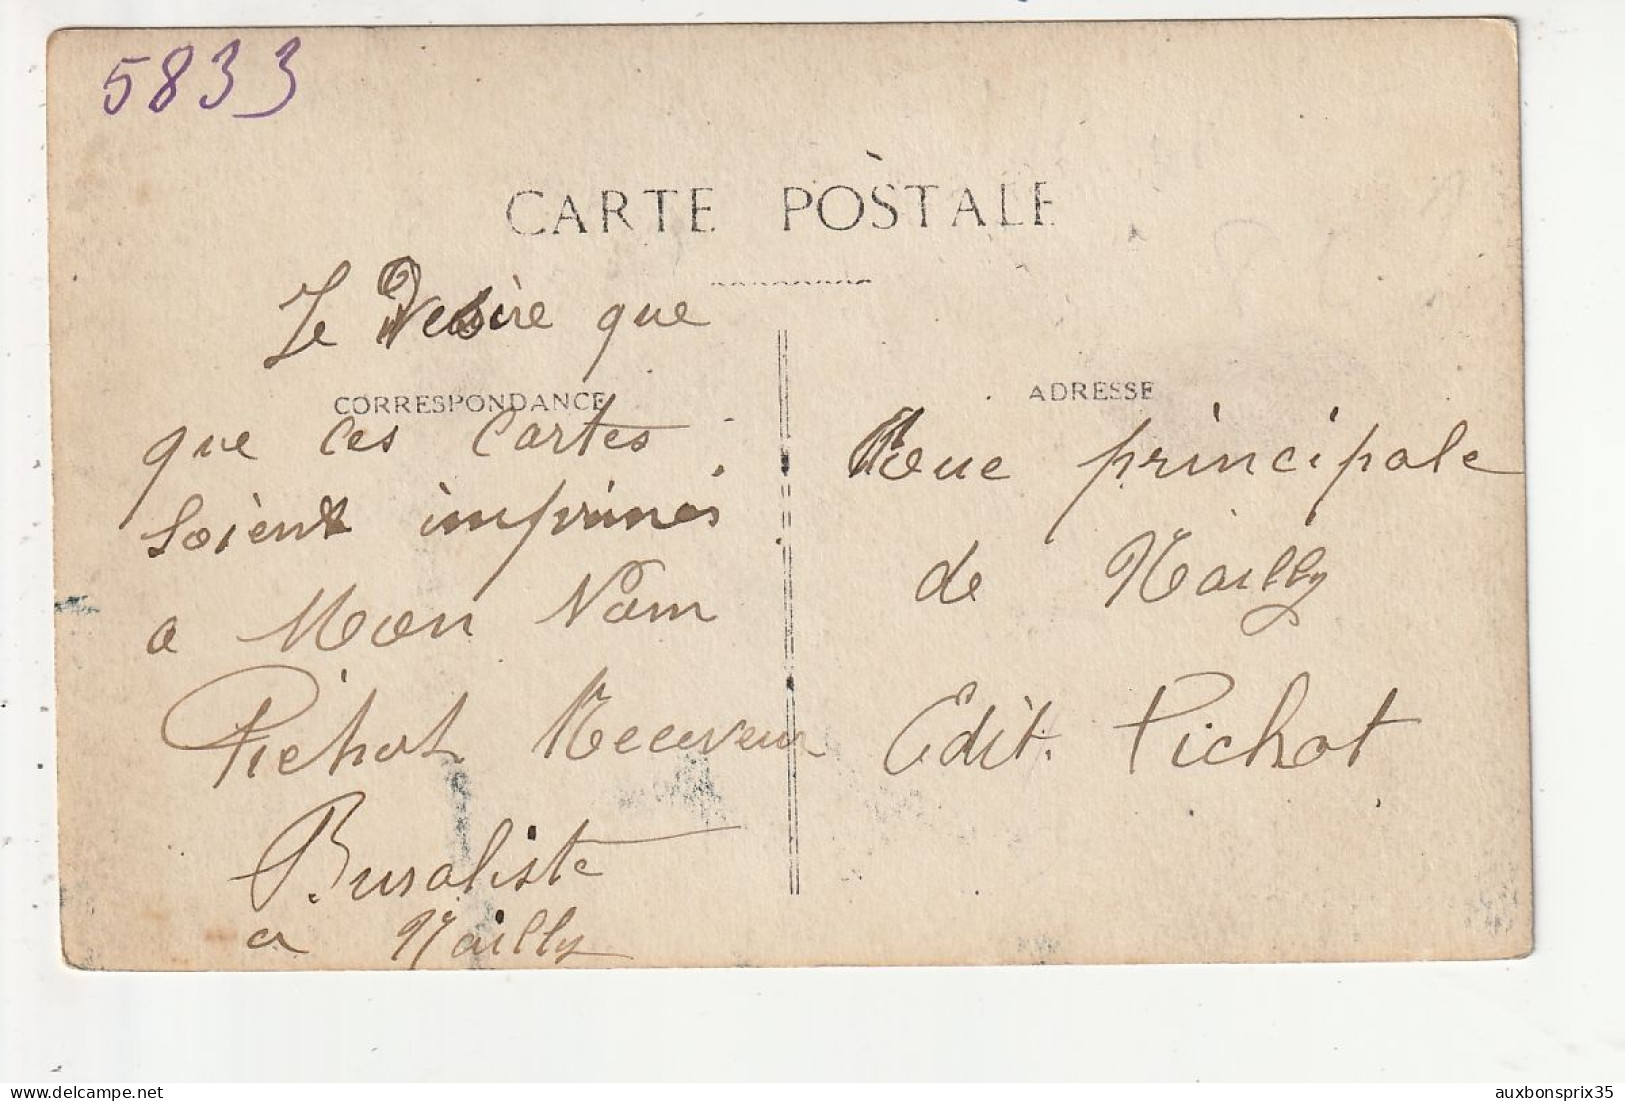 5833
CARTE POSTALE
Je Desire que
CORRESPONDANCE
que ces cartes
soient imprimés
a Mon Nom
Pichot Receveur
Buraliste
a Nailly
ADRESSE
Rue principale
de Nailly
Edit. Pichot
auxbonsprix35